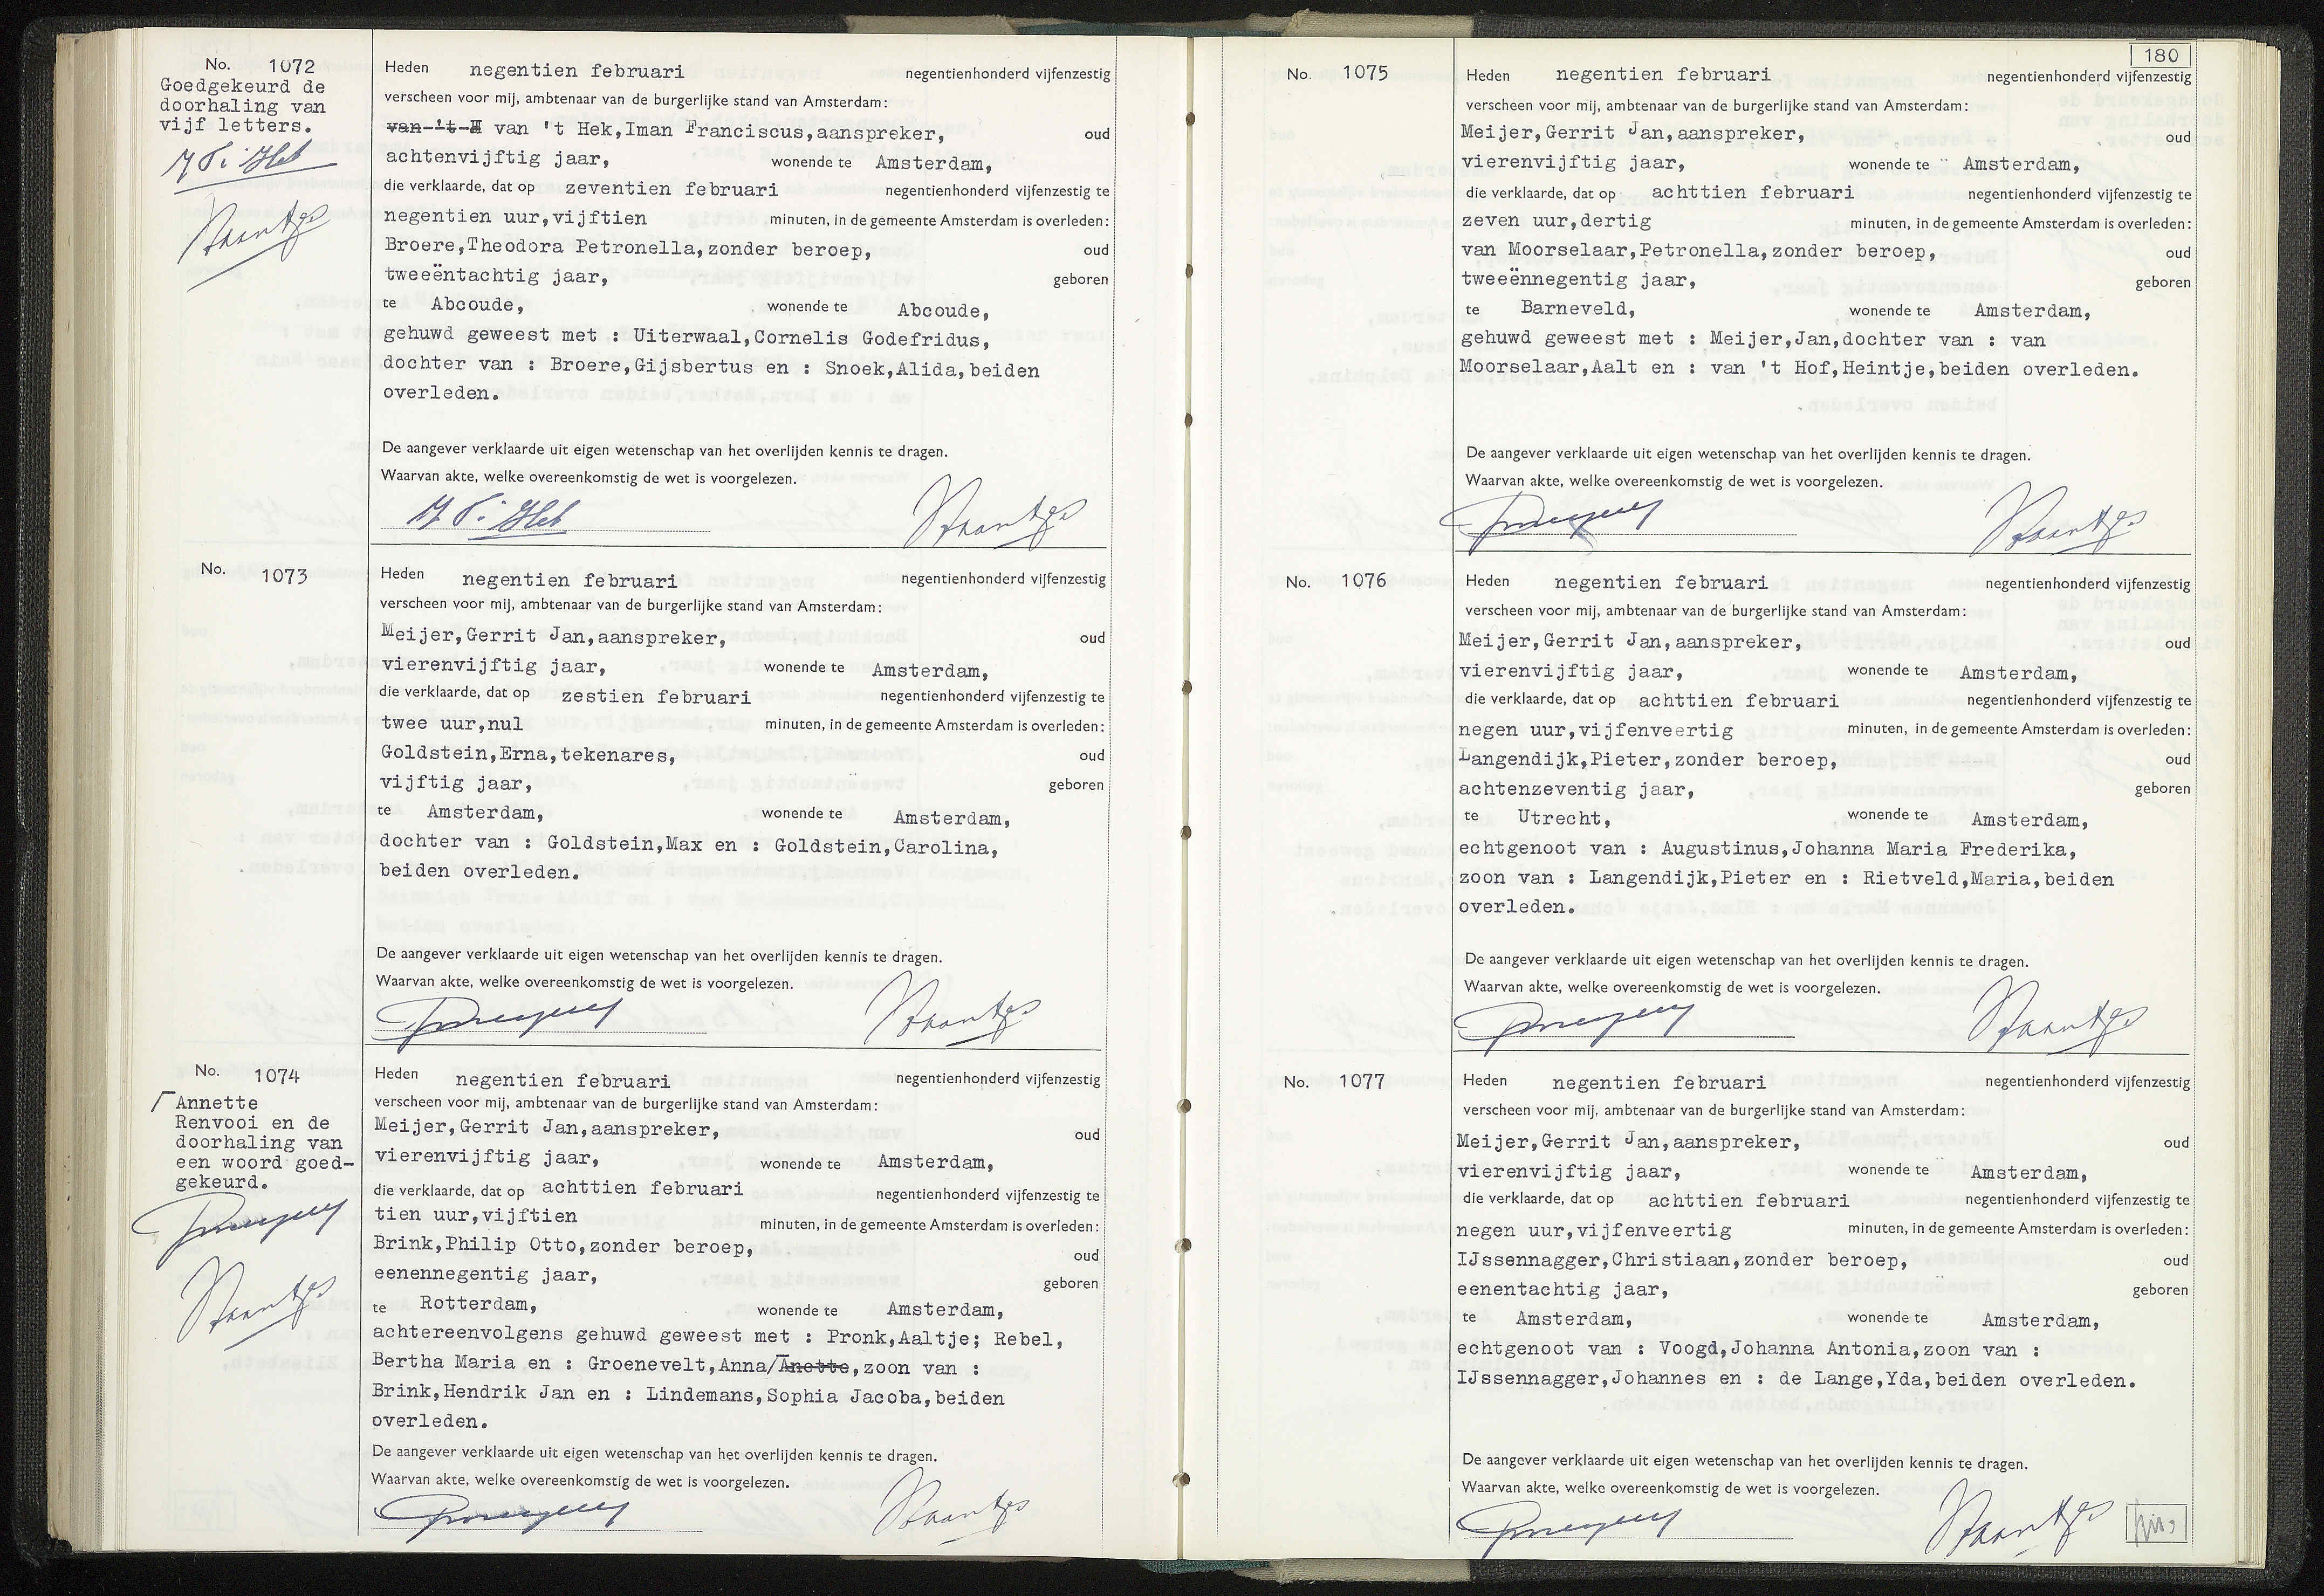 No. 1072
Goedgekeurd de
doorhaling van
vijf letters.
Heden negentien februari negentienhonderd vijfenzestig
verscheen voor mij, ambtenaar van de burgerlijke stand van Amsterdam:
van 't H van 't Hek,Iman Franciscus,aanspreker, oud
achtenvijftig jaar, wonende te Amsterdam,
die verklaarde, dat op zeventien februari negentienhonderd vijfenzestig te
negentien uur,vijftien minuten, in de gemeente Amsterdam is overleden:
Broere,Theodora Petronella,zonder beroep, oud
tweeëntachtig jaar, geboren
te Abcoude, wonende te Abcoude,
gehuwd geweest met : Uiterwaal,Cornelis Godefridus,
dochter van : Broere,Gijsbertus en : Snoek,Alida,beiden
overleden.
De aangever verklaarde uit eigen wetenschap van het overlijden kennis te dragen.
Waarvan akte, welke overeenkomstig de wet is voorgelezen.
No. 1073
Heden negentien februari negentienhonderd vijfenzestig
verscheen voor mij, ambtenaar van de burgerlijke stand van Amsterdam:
Meijer,Gerrit Jan,aanspreker, oud
vierenvijftig jaar, wonende te Amsterdam,
die verklaarde, dat op zestien februari negentienhonderd vijfenzestig te
twee uur,nul minuten, in de gemeente Amsterdam is overleden:
Goldstein,Erna,tekenares, oud
vijftig jaar, geboren
te Amsterdam, wonende te Amsterdam,
dochter van : Goldstein,Max en : Goldstein,Carolina,
beiden overleden.
De aangever verklaarde uit eigen wetenschap van het overlijden kennis te dragen.
Waarvan akte, welke overeenkomstig de wet is voorgelezen.
No. 1074
Annette
Renvooi en de
doorhaling van
een woord goed-
gekeurd.
Heden negentien februari negentienhonderd vijfenzestig
verscheen voor mij, ambtenaar van de burgerlijke stand van Amsterdam:
Meijer,Gerrit Jan,aanspreker, oud
vierenvijftig jaar, wonende te Amsterdam,
die verklaarde, dat op achttien februari negentienhonderd vijfenzestig te
tien uur,vijftien minuten, in de gemeente Amsterdam is overleden:
Brink,Philip Otto,zonder beroep, oud
eenennegentig jaar, geboren
te Rotterdam, wonende te Amsterdam,
achtereenvolgens gehuwd geweest met : Pronk,Aaltje; Rebel,
Bertha Maria en : Groenevelt,Anna/Anette,zoon van :
Brink,Hendrik Jan en : Lindemans,Sophia Jacoba,beiden
overleden.
De aangever verklaarde uit eigen wetenschap van het overlijden kennis te dragen.
Waarvan akte, welke overeenkomstig de wet is voorgelezen.
180
No. 1075
Heden negentien februari negentienhonderd vijfenzestig
verscheen voor mij, ambtenaar van de burgerlijke stand van Amsterdam:
Meijer,Gerrit Jan,aanspreker, oud
vierenvijftig jaar, wonende te Amsterdam,
die verklaarde, dat op achttien februari negentienhonderd vijfenzestig te
zeven uur,dertig minuten, in de gemeente Amsterdam is overleden:
van Moorselaar,Petronella,zonder beroep, oud
tweeënnegentig jaar, geboren
te Barneveld, wonende te Amsterdam,
gehuwd geweest met : Meijer,Jan,dochter van : van
Moorselaar,Aalt en : van 't Hof,Heintje,beiden overleden.
De aangever verklaarde uit eigen wetenschap van het overlijden kennis te dragen.
Waarvan akte, welke overeenkomstig de wet is voorgelezen.
No. 1076
Heden negentien februari negentienhonderd vijfenzestig
verscheen voor mij, ambtenaar van de burgerlijke stand van Amsterdam:
Meijer,Gerrit Jan,aanspreker, oud
vierenvijftig jaar, wonende te Amsterdam,
die verklaarde, dat op achttien februari negentienhonderd vijfenzestig te
negen uur,vijfenveertig minuten, in de gemeente Amsterdam is overleden:
Langendijk,Pieter,zonder beroep, oud
achtenzeventig jaar, geboren
te Utrecht, wonende te Amsterdam,
echtgenoot van : Augustinus,Johanna Maria Frederika,
zoon van : Langendijk,Pieter en : Rietveld,Maria,beiden
overleden.
De aangever verklaarde uit eigen wetenschap van het overlijden kennis te dragen.
Waarvan akte, welke overeenkomstig de wet is voorgelezen.
No. 1077
Heden negentien februari negentienhonderd vijfenzestig
verscheen voor mij, ambtenaar van de burgerlijke stand van Amsterdam:
Meijer,Gerrit Jan,aanspreker, oud
vierenvijftig jaar, wonende te Amsterdam,
die verklaarde, dat op achttien februari negentienhonderd vijfenzestig te
negen uur,vijfenveertig minuten, in de gemeente Amsterdam is overleden:
IJssennagger,Christiaan,zonder beroep, oud
eenentachtig jaar, geboren
te Amsterdam, wonende te Amsterdam,
echtgenoot van : Voogd,Johanna Antonia,zoon van :
IJssennagger,Johannes en : de Lange,Yda,beiden overleden.
De aangever verklaarde uit eigen wetenschap van het overlijden kennis te dragen.
Waarvan akte, welke overeenkomstig de wet is voorgelezen.